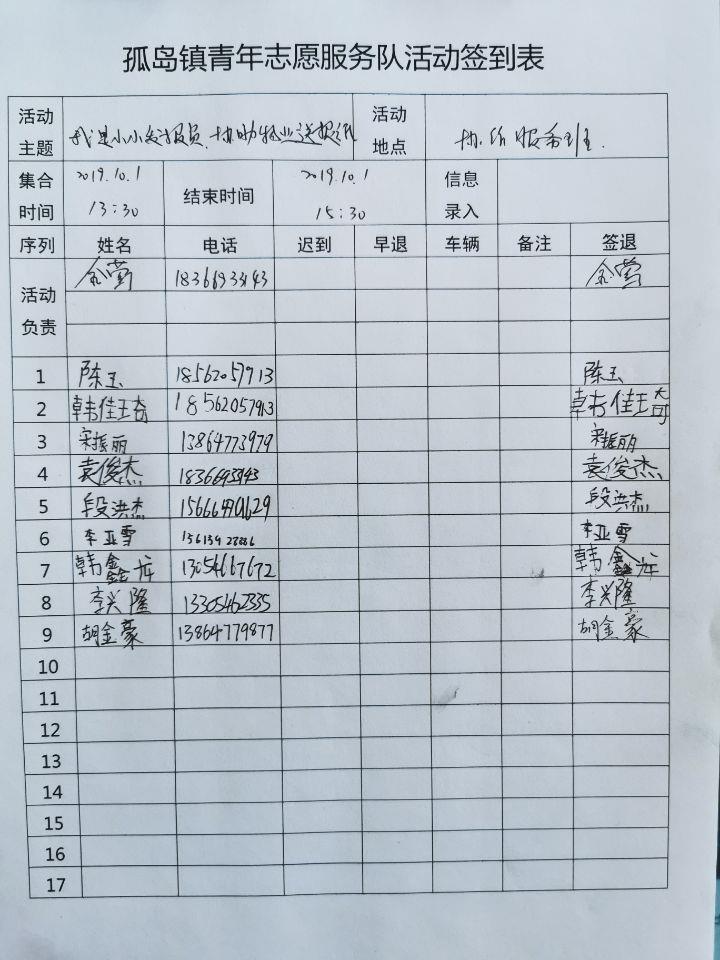 孤岛镇青年志愿服务队活动签到表
活动主题 我是小小发报员、协助物业送报 活动地点 服务班.
集合时间 2019.10.1 13:30 结束时间 2019.10.1 15:30 信息录入
序列 姓名 电话 迟到 早退 车辆 备注 签退
活动负责 金营 金营
1 陈玉 18562057913 陈玉
2 韩佳琦 18562057913 韩佳琦
3 宋振丽 13864773979 宋振丽
4 袁俊杰 袁俊杰
5 段洪杰 段洪杰
6 李亚雪 李亚雪
7 韩鑫龙 13054667672 韩鑫龙
8 李兴隆 13305462335 李兴隆
9 胡金豪 13864779877 胡金豪
10
11
12
13
14
15
16
17